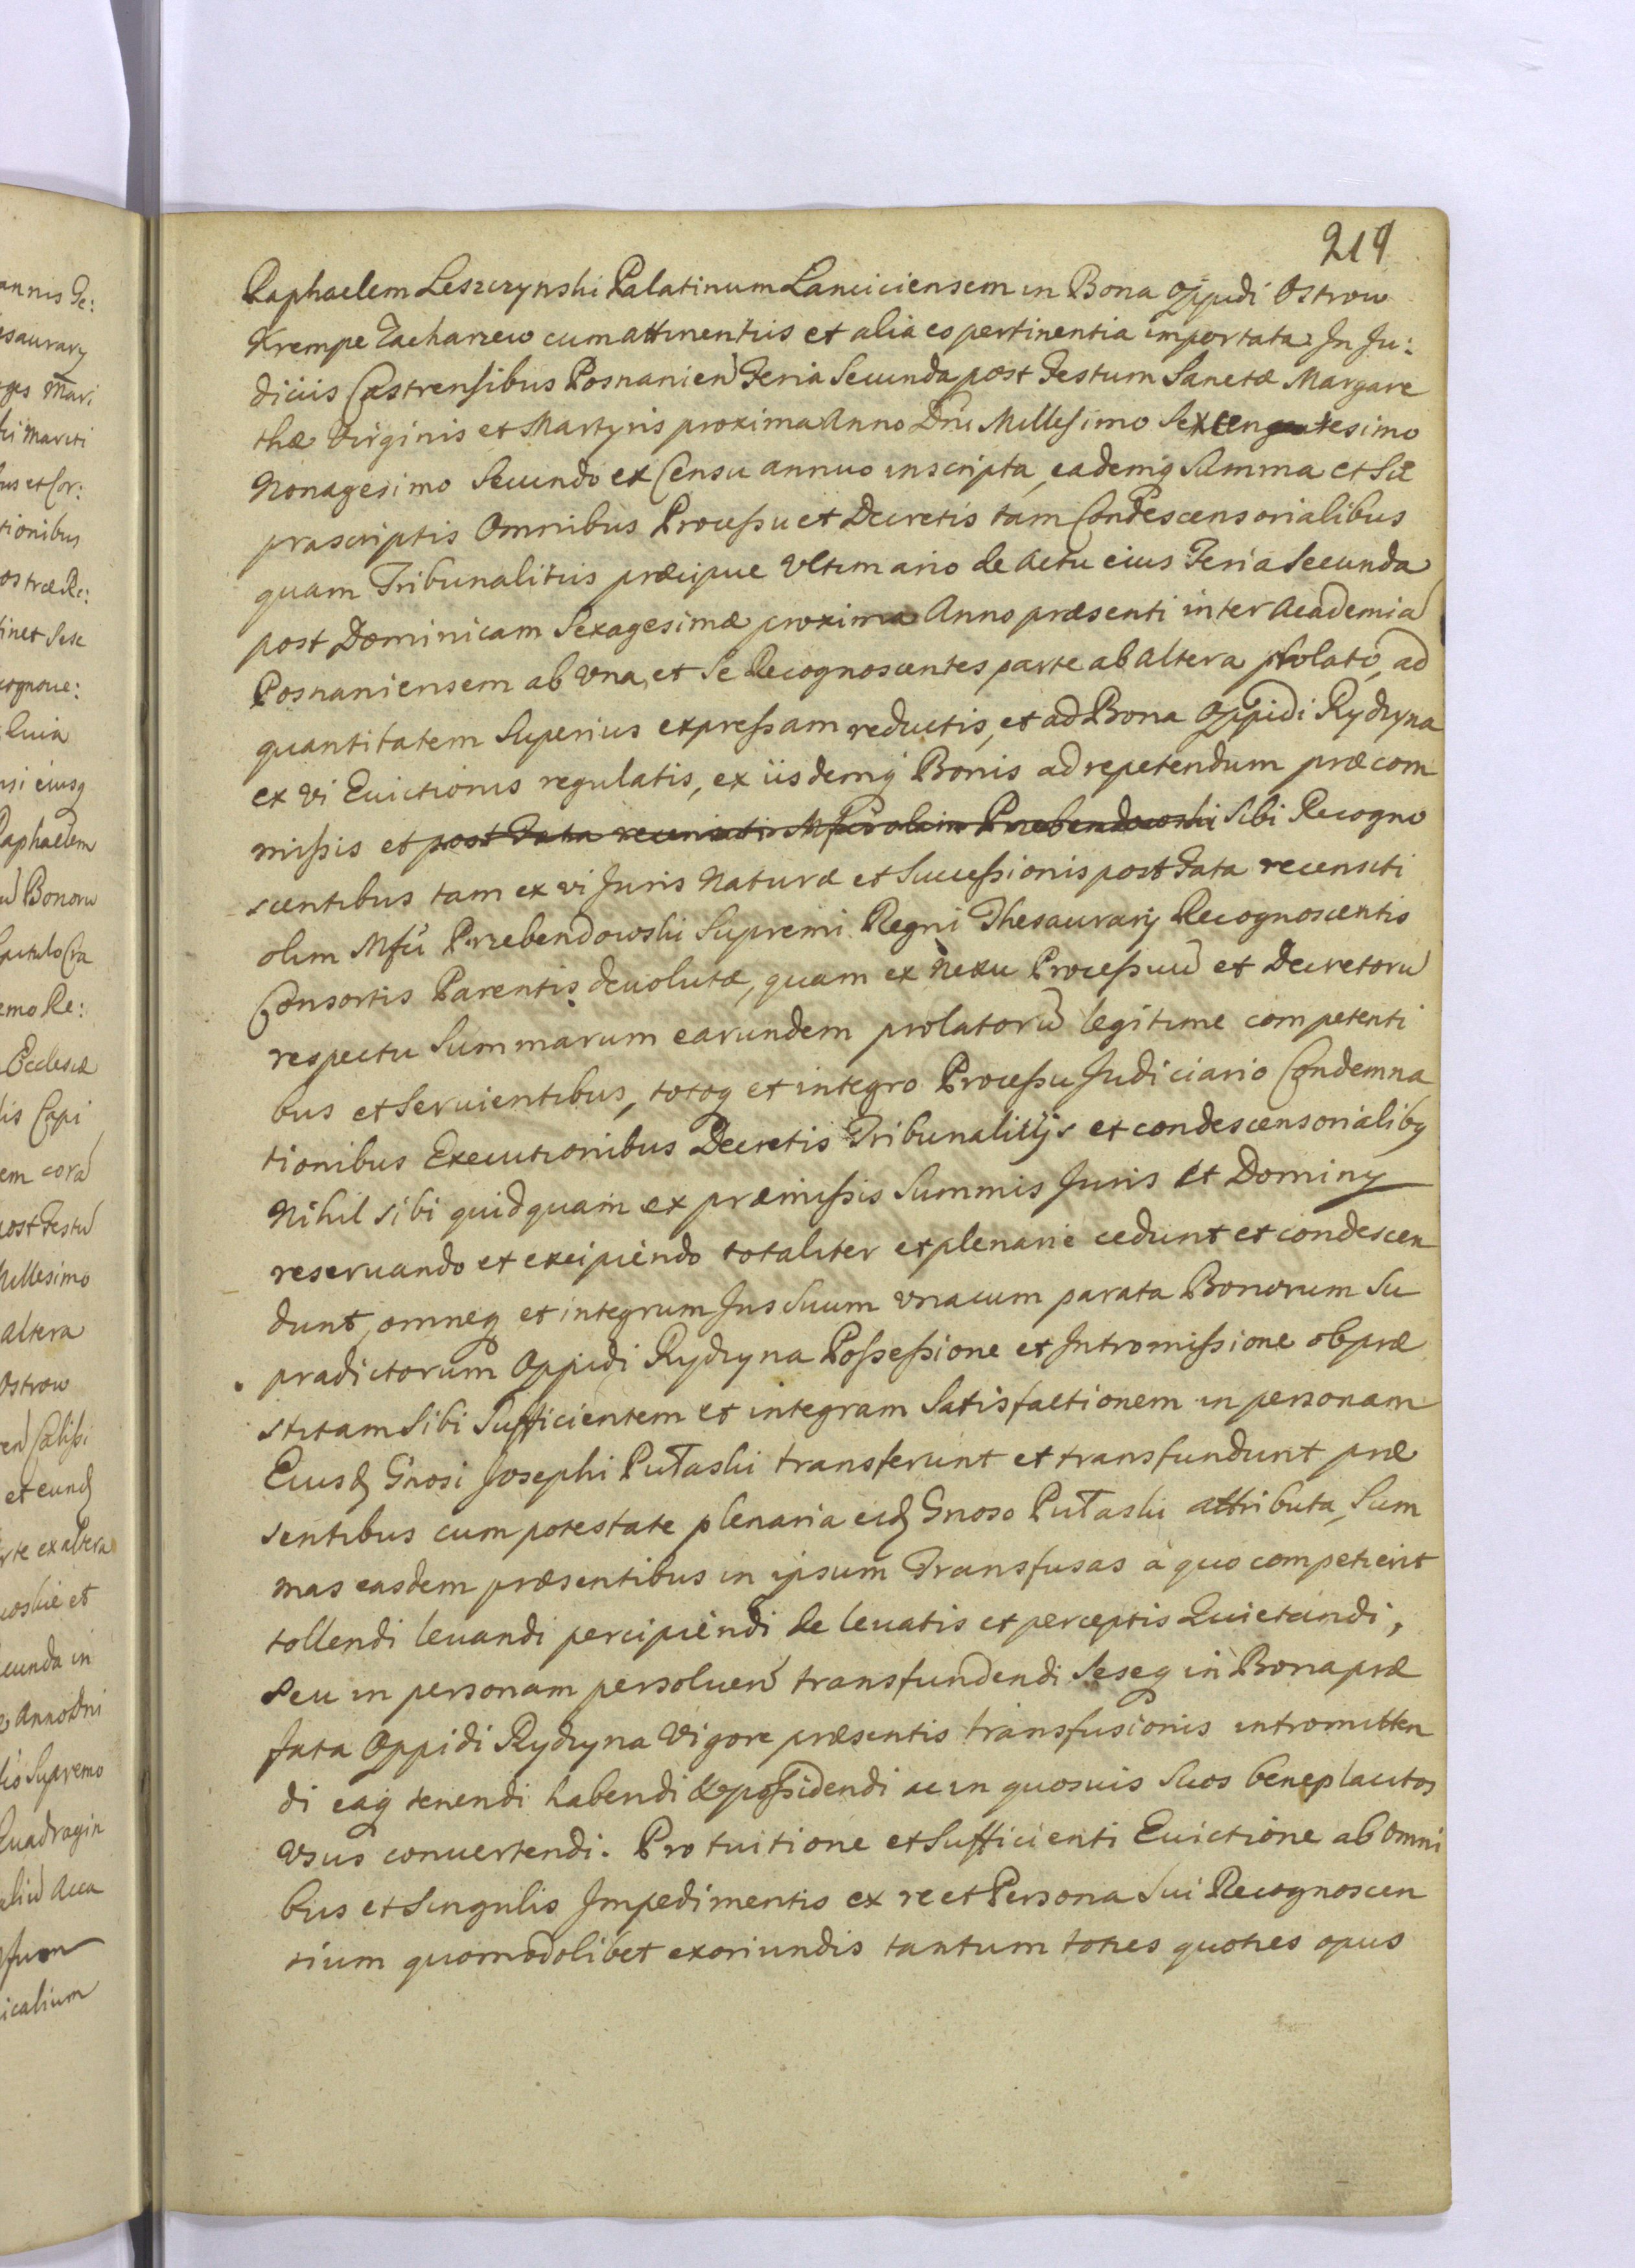 219
Raphaelem Leszczynski Palatinum Lanciciensem in Bona Oppidi Ostrow
Krempe Zacharzew cum attinentiis et alia eo pertinentia importata. In Ju:
diciis Castrensibus Posnanien Feria Secunda post Festum Sanctæ Margare
thæ Virginis et Martyris proxima Anno Dni Millesimo Sexcentesimo
Nonagesimo Secundo ex Censu annuo inscripta, eademq Summa et Su
prascriptis Omnibus Processu et Decretis tam Condescensorialibus
quam Tribunalitiis præcipue Ultimario de Actu eius Feria Secunda
post Dominicam Sexagesimæ proxima Anno præsenti inter Academia
Posnaniensem ab una, et Se Recognoscentes parte ab altera prolato, ad
quantitatem Superius expressam reductis, et ad Bona Oppidi Rydzyna
ex vi Evictionis regulatis, ex iisdemq Bonis ad repetendum præcom
missis et post Fata recensiti Mfci olim Przebendowski Sibi Recogno
scentibus tam ex vi Juris Naturæ et Successionis post Fata recensiti
olim Mfci Przebendowski Supremi Regni Thesaurarij Recognoscentis
Consortis Parentis devolutæ, quam ex Nexu Processuu et Decretoru
respectu Summarum earundem prolatoru legitime competenti
bus et Servientibus, totoq et integro Processu Judiciario Condemna
tionibus Executionibus Decretis Tribunalitijs et condescensorialibq
Nihil sibi quidquam ex præmissis Summis Juris et Dominy
reservando et excipiendo totaliter et plenarie cedunt et condescen
dunt, omneq et integrum Jus Suum unacum parata Bonorum Su
pradictorum Oppidi Rydzyna Possessione et Intromissione ob præ
stitam Sibi Sufficientem et integram Satisfactionem in personam
Eiusd Gnosi Josephi Pułaski transferunt et transfundunt præ
sentibus cum potestate plenaria eid Gnoso Pułaski attributa, Sum
mas easdem præsentibus in ipsum Transfusas à quo competierit
tollendi levandi percipiendi de levatis et perceptis Quietandi,
seu in personam persoluen transfundendi Seseq in Bona præ
fata Oppidi Rydzyna Vigore præsentis transfusionis intromitten
di eaq tenendi habendi & possidendi ac in quosvis Suos beneplacitos
Usus convertendi. Pro tuitione et Sufficienti Evictione ab omni
bus et Singulis Impedimentis ex re et Persona Sui Recognoscen
tium quomodolibet exoriundis tantum toties quoties opus
annis Fe:
esaurary
Mari
Mariti
us et Cor:
tionibus
ostræ Re:
tinet Sese
cognove:
si eiusq
Raphaelem
Bonoru
emo Re:
Ecclesiæ
lis Capi
em cora
post Festu
Millesimo
altera
Ostrow
et eund
rte ex altera
oskie et
cunda in
Anno Dni
Supremo
Quadragin
Acca
icalium